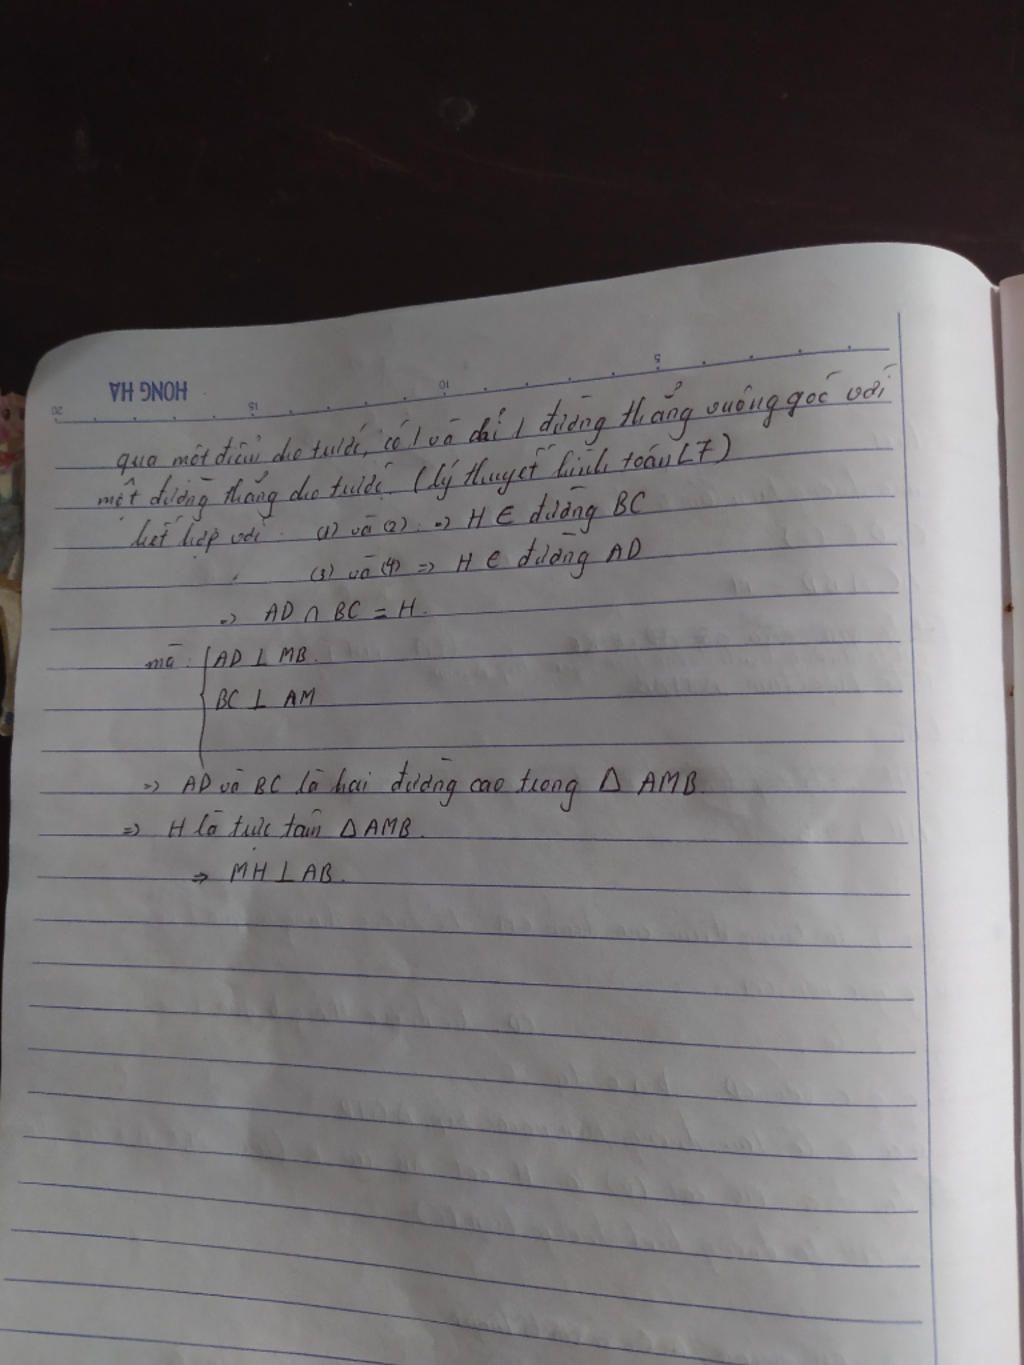 HONG HA
5
10
15
20
qua một điểm cho trước, có 1 và chỉ 1 đường thẳng vuông góc với
một đường thẳng cho trước. (lý thuyết hình toán L7)
kết hợp với: (1) và (2) => H ∈ đường BC
(3) và (4) => H ∈ đường AD
=> AD ∩ BC = H.
mà: { AD ⊥ MB.
BC ⊥ AM
=> AD và BC là hai đường cao trong Δ AMB.
=> H là trực tâm Δ AMB.
=> MH ⊥ AB.